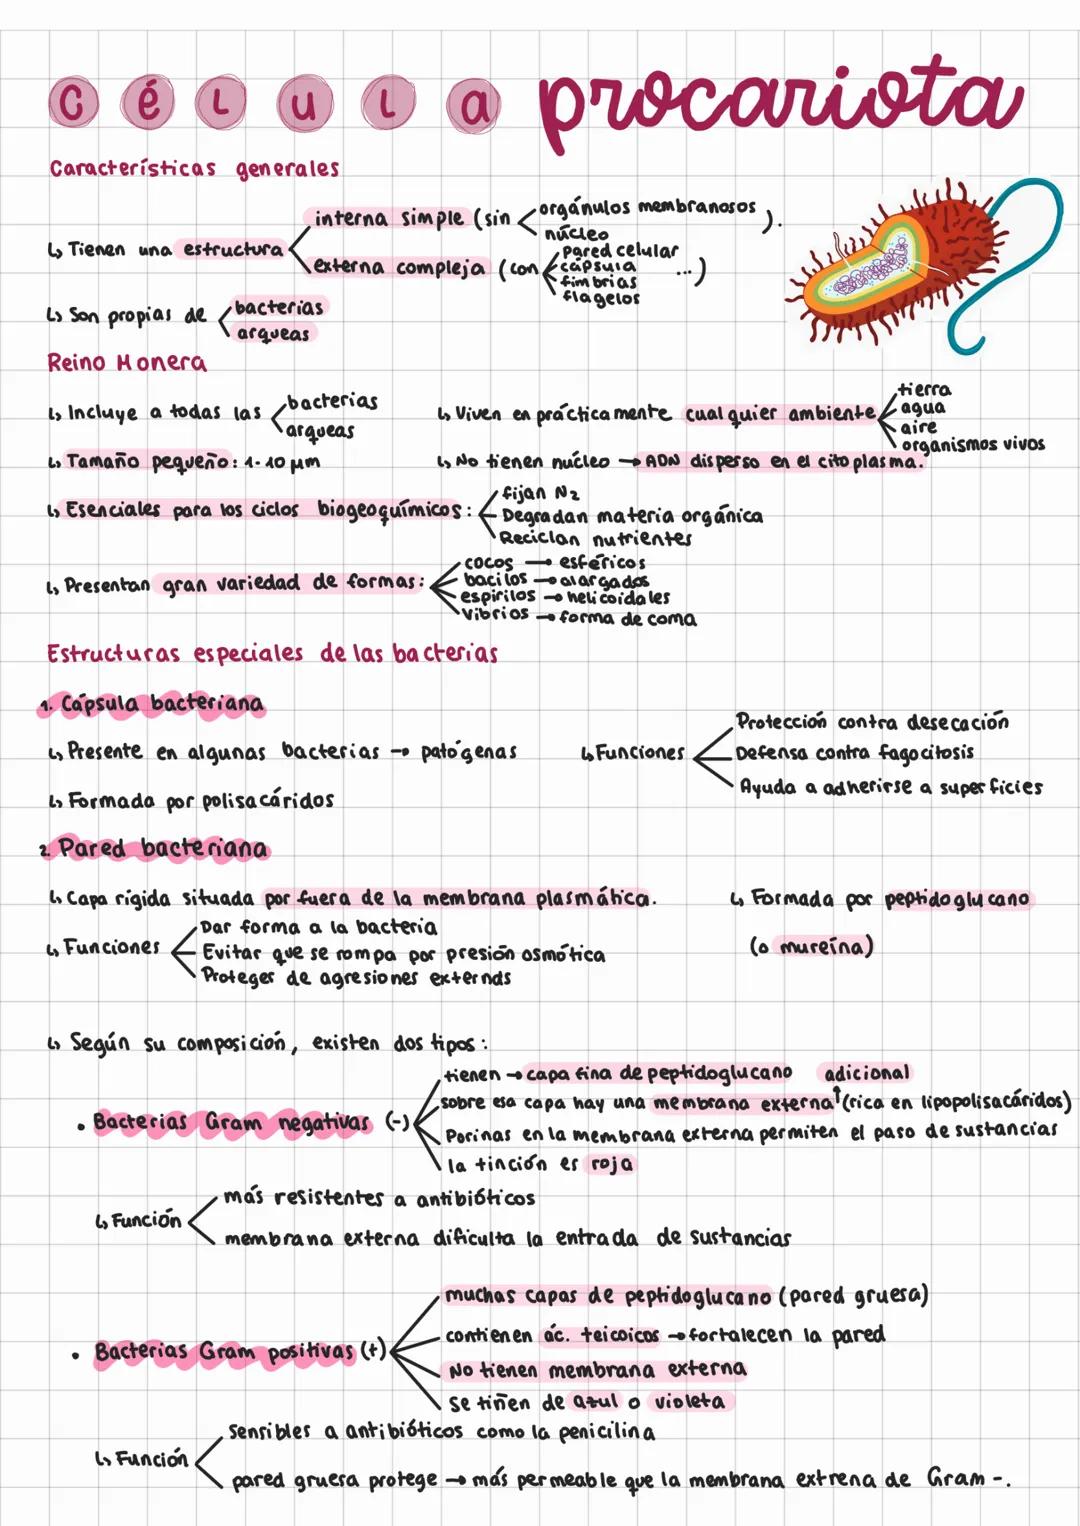 Célula procariota
Características generales
↳ Tienen una estructura
interna simple (sin
orgánulos membranosos
núcleo
).
externa compleja (con
Pared celular
cápsula
fimbrias
flagelos
...)
↳ Son propias de
bacterias
arqueas
Reino Monera
↳ Incluye a todas las
bacterias
arqueas
↳ Viven en prácticamente cualquier ambiente
tierra
agua
aire
organismos vivos
↳ Tamaño pequeño: 1-10 µm
↳ No tienen núcleo → ADN disperso en el citoplasma.
↳ Esenciales para los ciclos biogeoquímicos:
fijan N₂
Degradan materia orgánica
Reciclan nutrientes
↳ Presentan gran variedad de formas:
cocos → esféricos
bacilos → alargados
espirilos → helicoidales
vibrios → forma de coma
Estructuras especiales de las bacterias
1. Cápsula bacteriana
↳ Presente en algunas bacterias → patógenas
↳ Funciones
Protección contra desecación
Defensa contra fagocitosis
Ayuda a adherirse a superficies
↳ Formada por polisacáridos
2. Pared bacteriana
↳ Capa rígida situada por fuera de la membrana plasmática.
↳ Formada por peptidoglucano
(o mureína)
↳ Funciones
Dar forma a la bacteria
Evitar que se rompa por presión osmótica
Proteger de agresiones externas
↳ Según su composición, existen dos tipos:
• Bacterias Gram negativas (-)
tienen → capa fina de peptidoglucano
adicional
sobre esa capa hay una membrana externa↑(rica en lipopolisacáridos)
Porinas en la membrana externa permiten el paso de sustancias
la tinción es roja
↳ Función
más resistentes a antibióticos
membrana externa dificulta la entrada de sustancias
• Bacterias Gram positivas (+)
muchas capas de peptidoglucano (pared gruesa)
contienen ác. teicoicos → fortalecen la pared
No tienen membrana externa
Se tiñen de azul o violeta
↳ Función
Sensibles a antibióticos como la penicilina
pared gruesa protege → más permeable que la membrana extrena de Gram -.